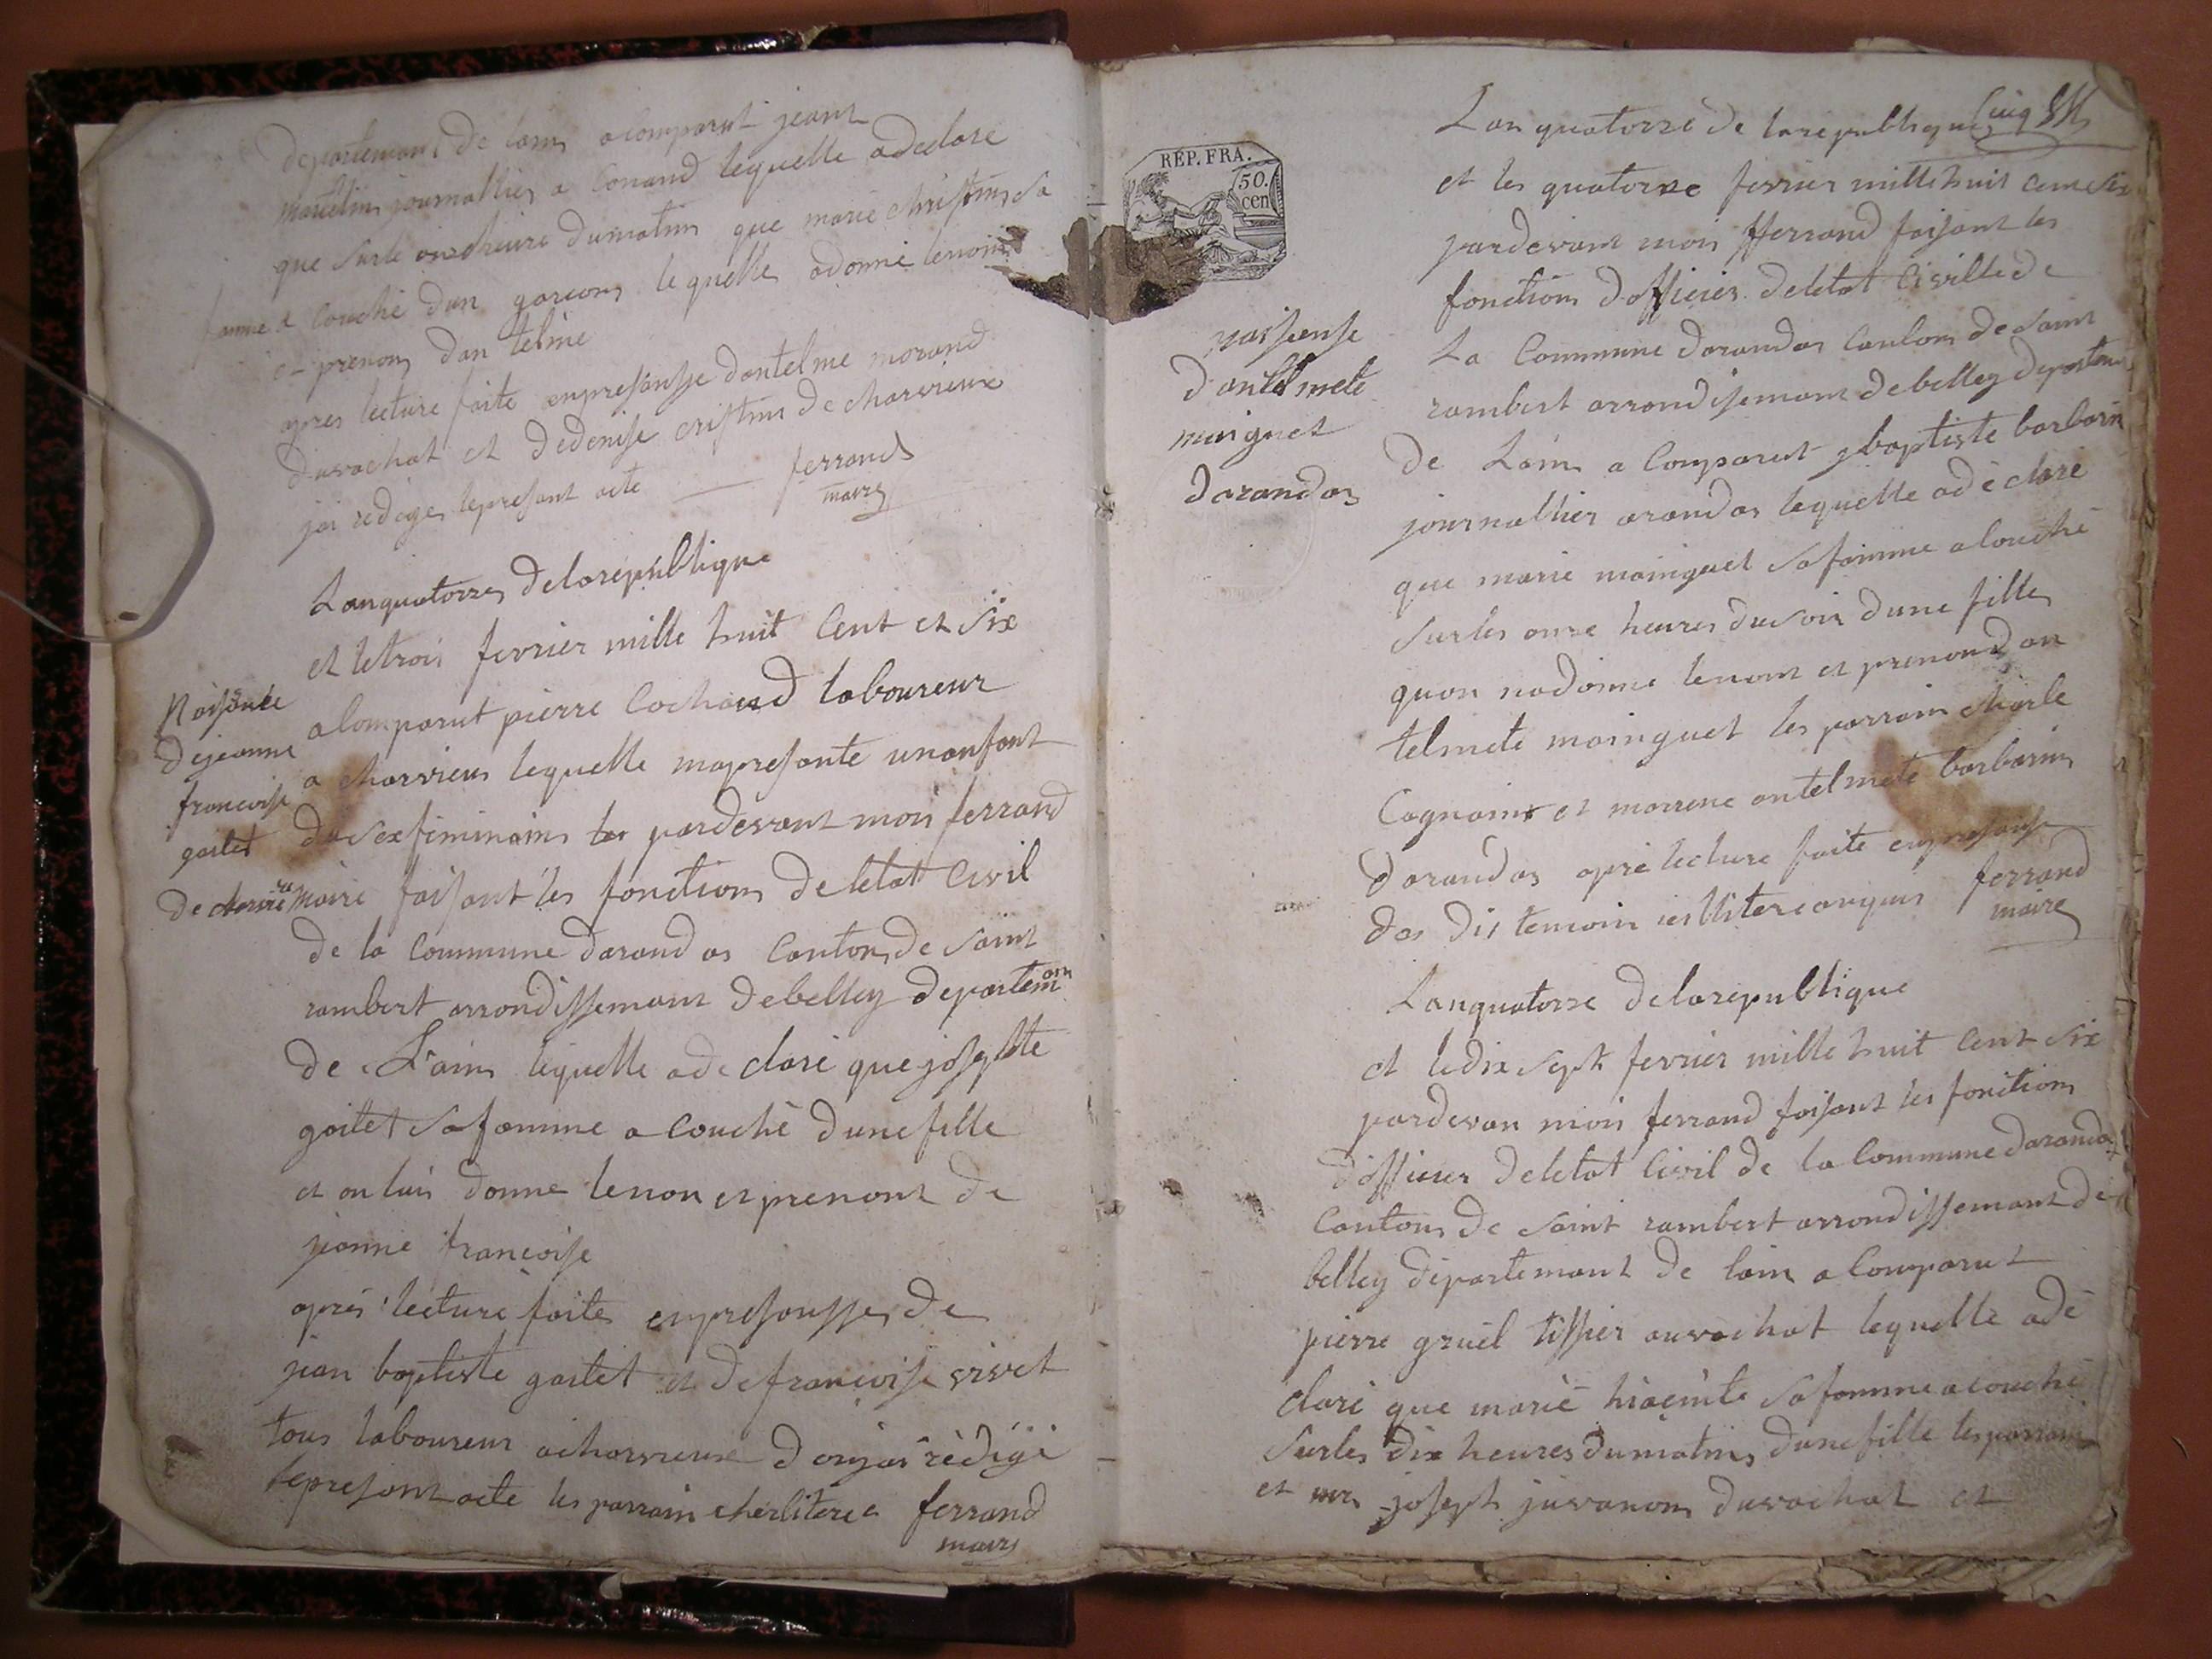 departemant De lain acomparut jeant
journallier a Conand lequelle adeclare
que surle onzheure dumatin que marie christin sa
famme a Couché dun garcons lequelle adonné lenoin
et prenon dan telme
apres lecture faite enpresansse dantelme morand
duvachat et dedenise cristin de charvieux
jai redige lepresant acte ferrand
maire
Lanquatorze delarepublique
et letrois fevrier mille huit Cent et six
aComparut pierre Cochand laboureur
a charvieux lequelle mapresante unanfant
du sex feminain pardevant moi ferrand
maire faisant les fonctions de letat Civil
de la Commune darandas Canton de saint
rambert arrondissemant debelley departem an
de Lain lequelle adeclaré que josephte
gaitet sa famme a Couché dunefille
et on lui donne lenon et prenont de
jeanne francoise
aprés lecture faite enpresansse de
jean baptiste gaitet et defrancoise vivet
tous laboureur acharvieux donjai rédigé
lepresant acte les parrain ferrand
maire
Naisance
dejeanne
francoise
gaitet
de
RÉP. FRA.
50.
cen
naisense
dantelmete
mainguet
darandas
Cinq
Lan quatorze de larepublique
et les quatorze fevrier mille huit cent six
pardevant moi fferrand faisant les
fonction dofficier deletat Civille de
La Commune darandas Canton de saint
rambert arrondisemant debelley departeme
de Lain a Comparut jbaptiste barbarin
journallier arandas lequelle adéclaré
que marie mainguet sa famme a Couché
surles onze heures dusoir dune fille
quon nadonne lenont et prenond an
telmete mainguet les parrain charle
Cagnain et marrene antelmete barbarin
darandas apré lecture faite enpresanse
das dis temoin ferrand
maire
Lanquatorze delarepublique
et ledix sept fevrier mille huit Cent six
pardevan moi ferrand faisant les fonction
dofficier deletat Civil de la Commune darandas
Canton de saint rambert arrondissemant de
belley départemant de lain a Comparut
pierre gruel tissier auvachat lequelle adé
claré que marie hiacinte sa famme acouché
surles dix heures dumatin dunefille les parrain
et joseph juvanon duvachat et